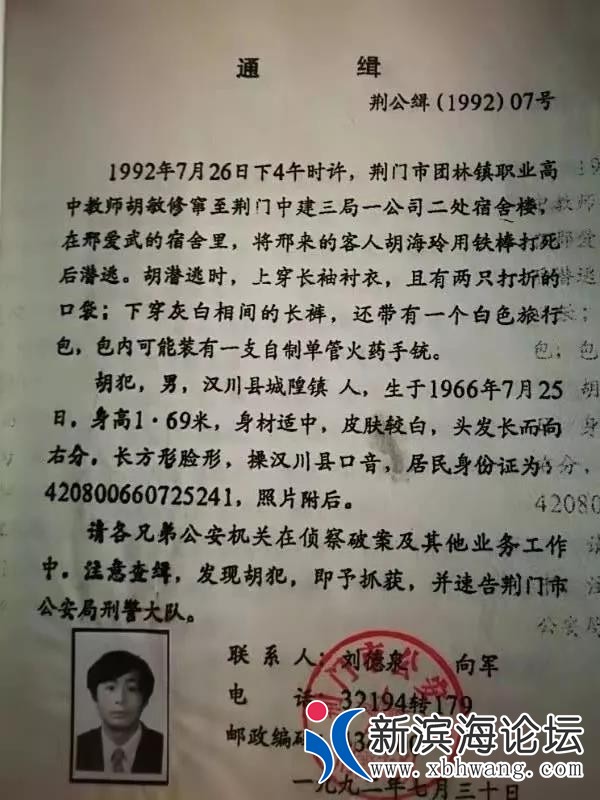 通 缉
荆公缉(1992)07号
1992年7月26日下4午时许，荆门市团林镇职业高
中教师胡敏修窜至荆门中建三局一公司二处宿舍楼，
在邢爱武的宿舍里，将邢来的客人胡海玲用铁棒打死
后潜逃。胡潜逃时，上穿长袖衬衣，且有两只打折的
口袋；下穿灰白相间的长裤，还带有一个白色旅行
包，包内可能装有一支自制单管火药手铳。
胡犯，男，汉川县城隍镇 人，生于1966年7月25
日，身高1·69米，身材适中，皮肤较白，头发长而向
右分，长方形脸形，操汉川县口音，居民身份证为：
420800660725241，照片附后。
请各兄弟公安机关在侦察破案及其他业务工作
中。注意查缉，发现胡犯，即予抓获，并速告荆门市
公安局刑警大队。
联系人：刘德泉 向军
电 话：32194转179
邮政编码
一九九二年七月三十日
门市公安
新滨海论坛
www.xbhwang.com